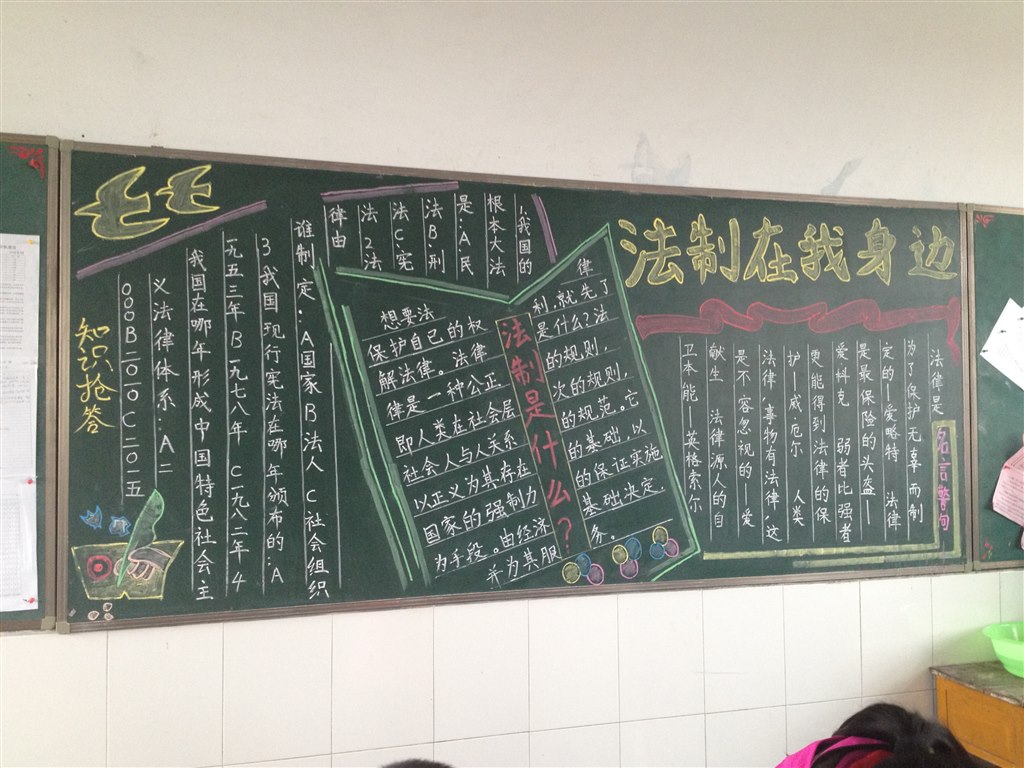 法制在我身边
名言警句
法律是
为了保护无辜而制
定的—爱略特 法律
是最保险的头盔—
爱科克 弱者比强者
更能得到法律的保
护—威厄尔 人类
是不容忽视的—爱
法律,事物有法律,这
献生 法律源人的自
卫本能—英格索尔
法制是什么?
想要法律
保护自己的权利,就先了
解法律。法律是什么?法
律是一种公正的规则,
即人类在社会层次的规则,
社会人与人关系的规范。它
以正义为其存在的基础,以
国家的强制力的保证实施
为手段。由经济基础决定,
并为其服务。
1,我国的
根本大法
是:A民
法B.刑
法C.宪
法 2法
律由
谁制定.A国家B法人 C社会组织
3我国现行宪法在哪年颁布的:A
一九五三年B一九七八年 C一九八二年 4
我国在哪年形成中国特色社会主
义法律体系:A二
000B二0一0 C二0一五
知识抢答